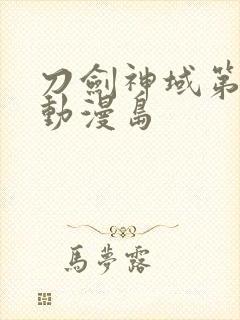 刀劍神域第
動漫島
馬夢露